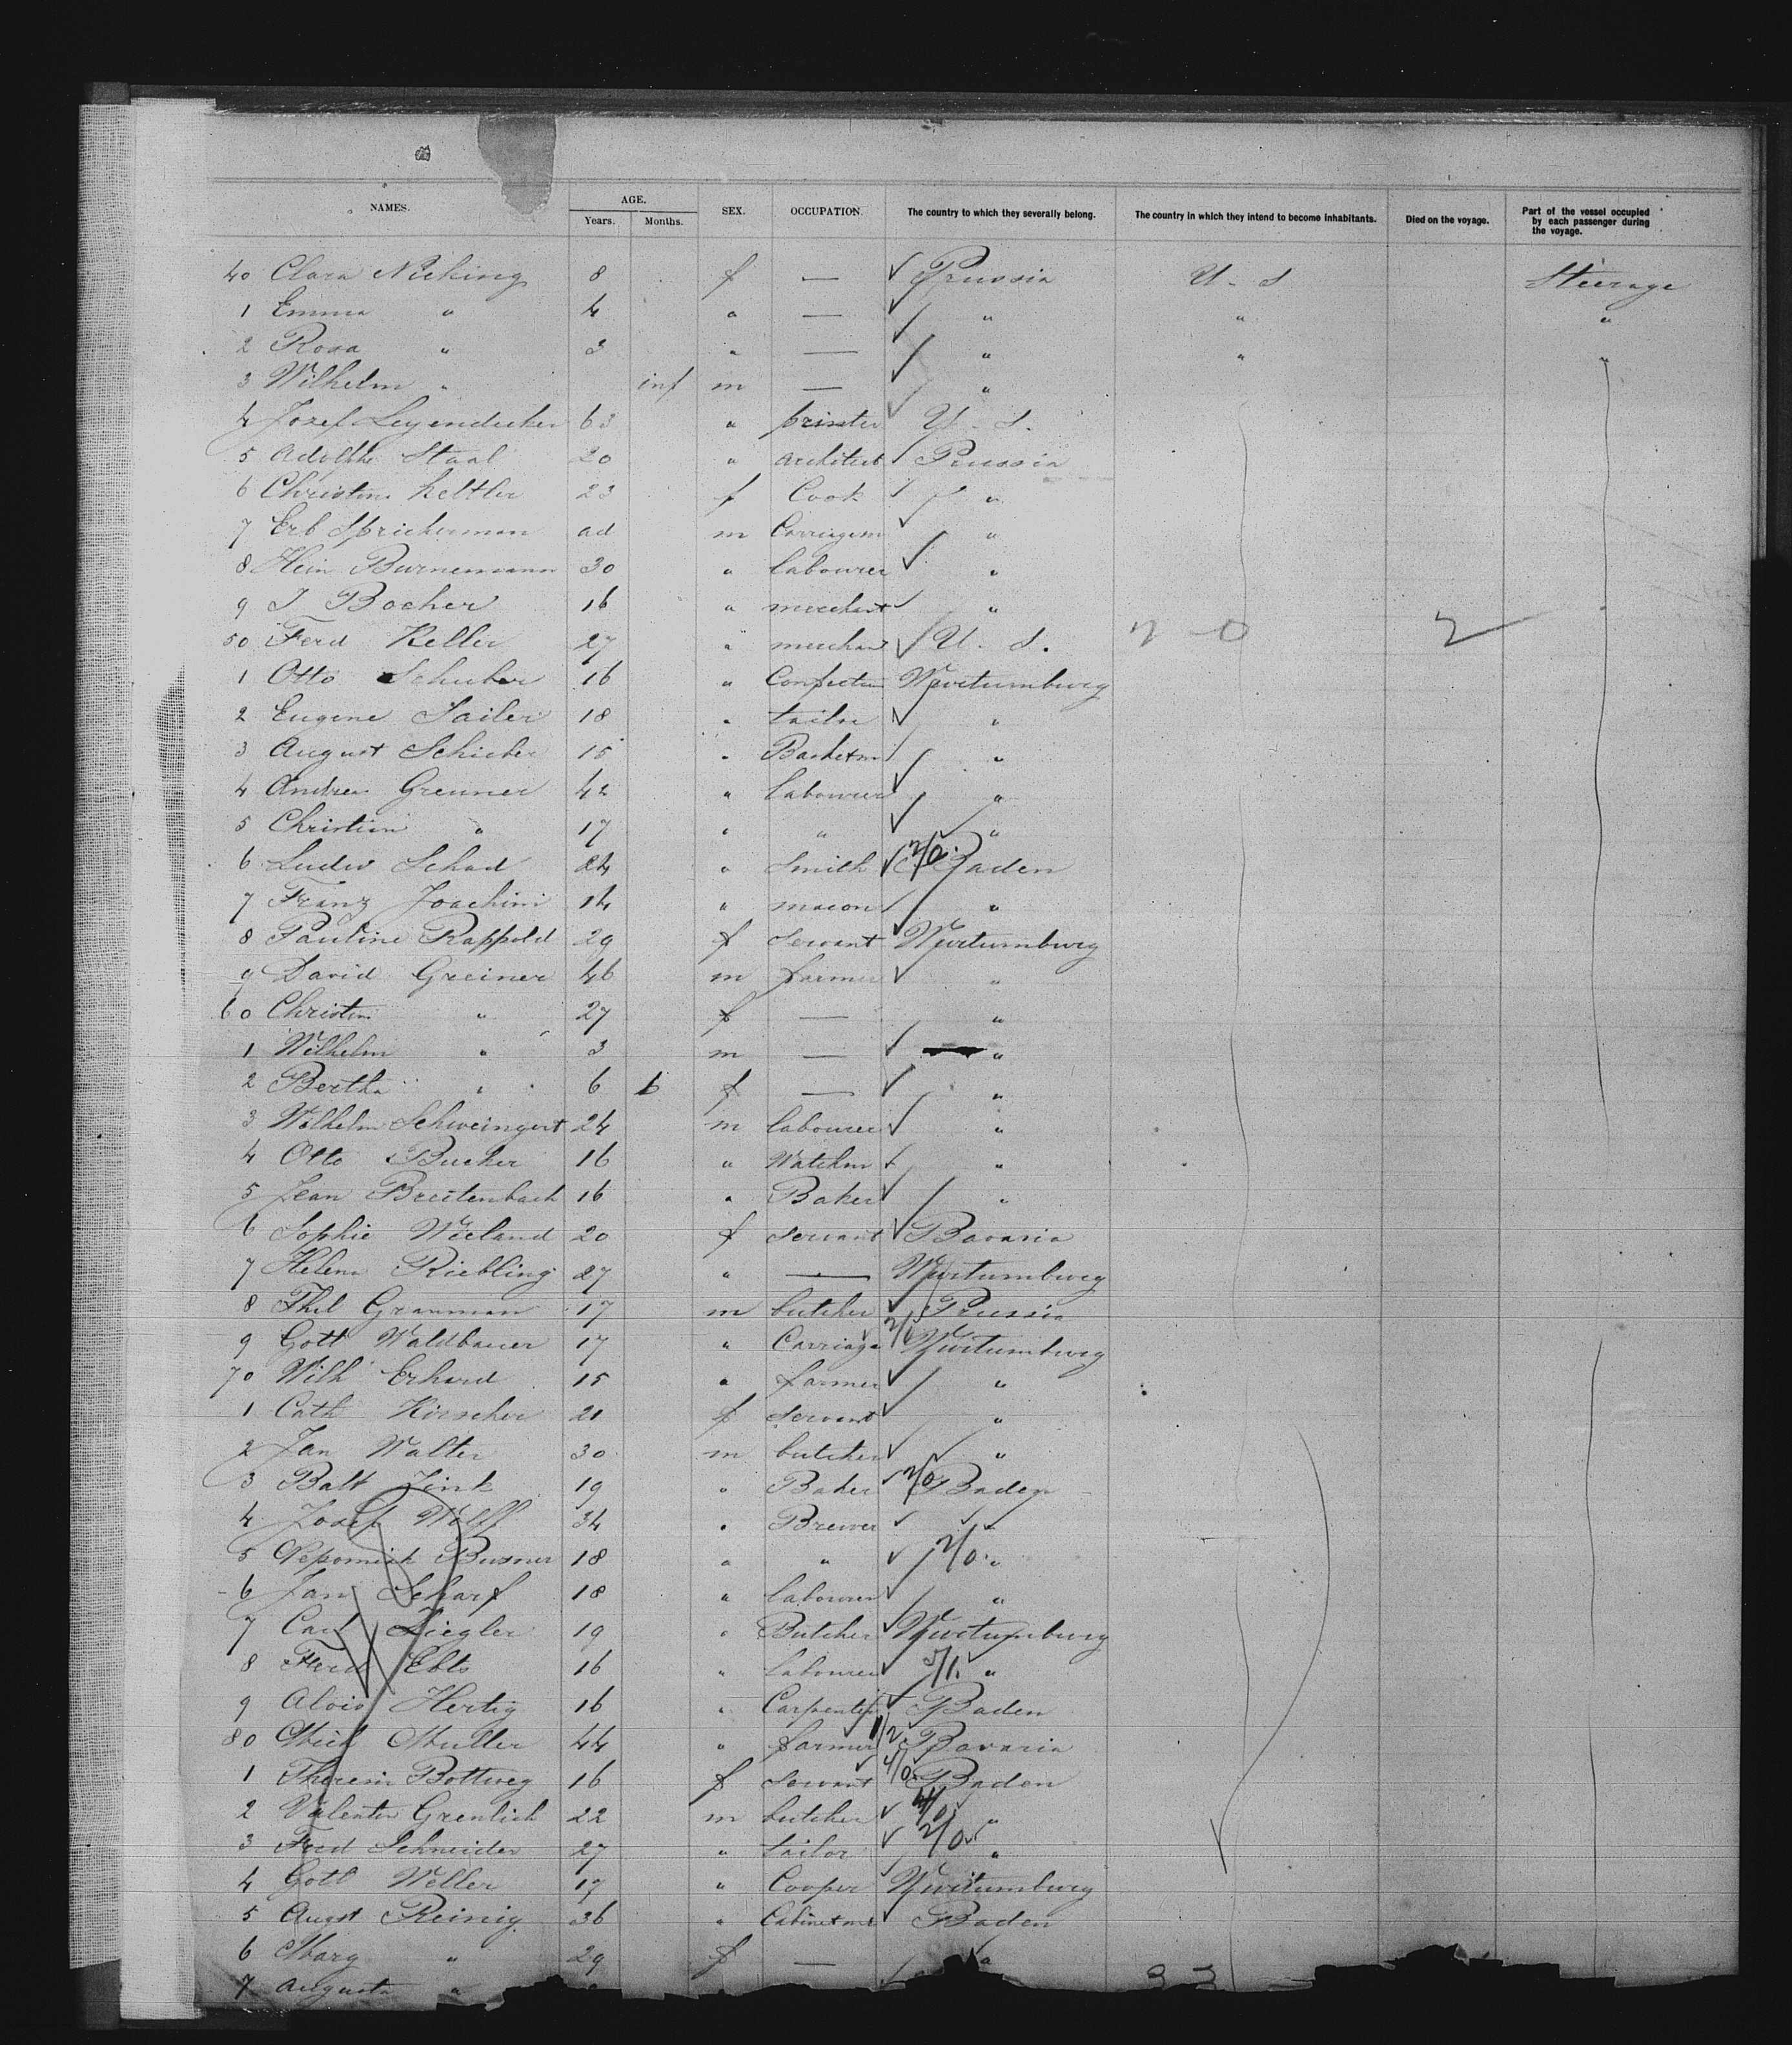 NAMES. AGE. Years. Months. SEX. OCCUPATION. The country to which they severally belong. The country in which they intend to become inhabitants. Died on the voyage. Part of the vessel occupied by each passenger during the voyage.
40 Clara Nieking 8 f — Prussia U. S Steerage
1 Emma " 4 " — " " "
2 Rosa " 3 " — " " "
3 Wilhelm " inf m — "
4 Josef Leyendecker 63 " printer U. S.
5 Adolthe Staal 20 " architect Prussia
6 Christine Keltler 23 f Cook "
7 Erb Sprickerman ad m Carriagem "
8 Hein Burnemann 30 " labourer "
9 J Bocher 16 " merchant "
50 Ferd Keller 27 " merchan U. S.
1 Otto Schuber 16 " Confection Wurtumburg
2 Eugene Sailer 18 " tailor "
3 August Schieber 15 " Basketm "
4 Andrea Greuner 42 " labourer "
5 Christian " 17 " " "
6 Ludw Schad 24 " Smith 2/0 Baden
7 Franz Joachim 14 " mason "
8 Pauline Rappold 29 f Servant Wurtumburg
9 David Greiner 46 m farmer "
60 Christin " 27 f — "
1 Wilhelm " 3 m — "
2 Bertha " 6 6 f — "
3 Wilhelm Schweingert 24 m labourer "
4 Otto Bucher 16 " Watchm "
5 Jean Breitenbach 16 " Baker "
6 Sophie Wieland 20 f Servant Bavaria
7 Helena Riebling 27 " — Wurtumburg
8 Phil Grauman 17 m butcher Prussia
9 Gott Waldbauer 17 " Carriage Wurtumburg
70 Wilh Erhard 15 " farmer "
1 Cath Hirscher 21 f Servant "
2 Jan Walter 30 m butcher "
3 Balt Zink 19 " Baker 2/0 Baden
4 Josef Wolff 34 " Brewer "
5 Nepomick Busner 18 " " 2/0 "
6 Jan Scharf 18 " labourer "
7 Carl Ziegler 19 " Butcher Wurtumburg
8 Ferd Ebts 16 " labourer "
9 Alois Hertig 16 " Carpenter Baden
80 Mich Muller 44 " farmer 1/2 Bavaria
1 Theresia Bottweg 16 f Servant Baden
2 Valentin Grenlich 22 m butcher "
3 Ferd Schneider 27 " Sailor 2/0 "
4 Gott Weller 17 " Cooper Wurtumburg
5 Augst Reinig 36 " Cabinetmr Baden
6 Marg " 29 f — "
7 Augusta "